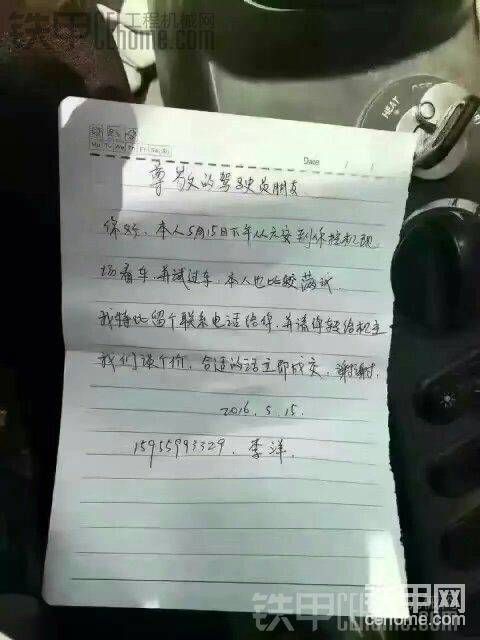 铁甲工程机械网
cehome.com
HEAT
Mo Tu We Th Fr Sa Su
Date / /
尊敬的驾驶员朋友
你好、本人5月15日下午从六安到你挖机现
场看车.并试过车.本人也比较满试
我特此留个联系电话给你.并请你转给机主
我们谈个价.合适的话立即成交.谢谢.
2016.5.15.
15955993329.李洋.
铁甲网
cehome.com